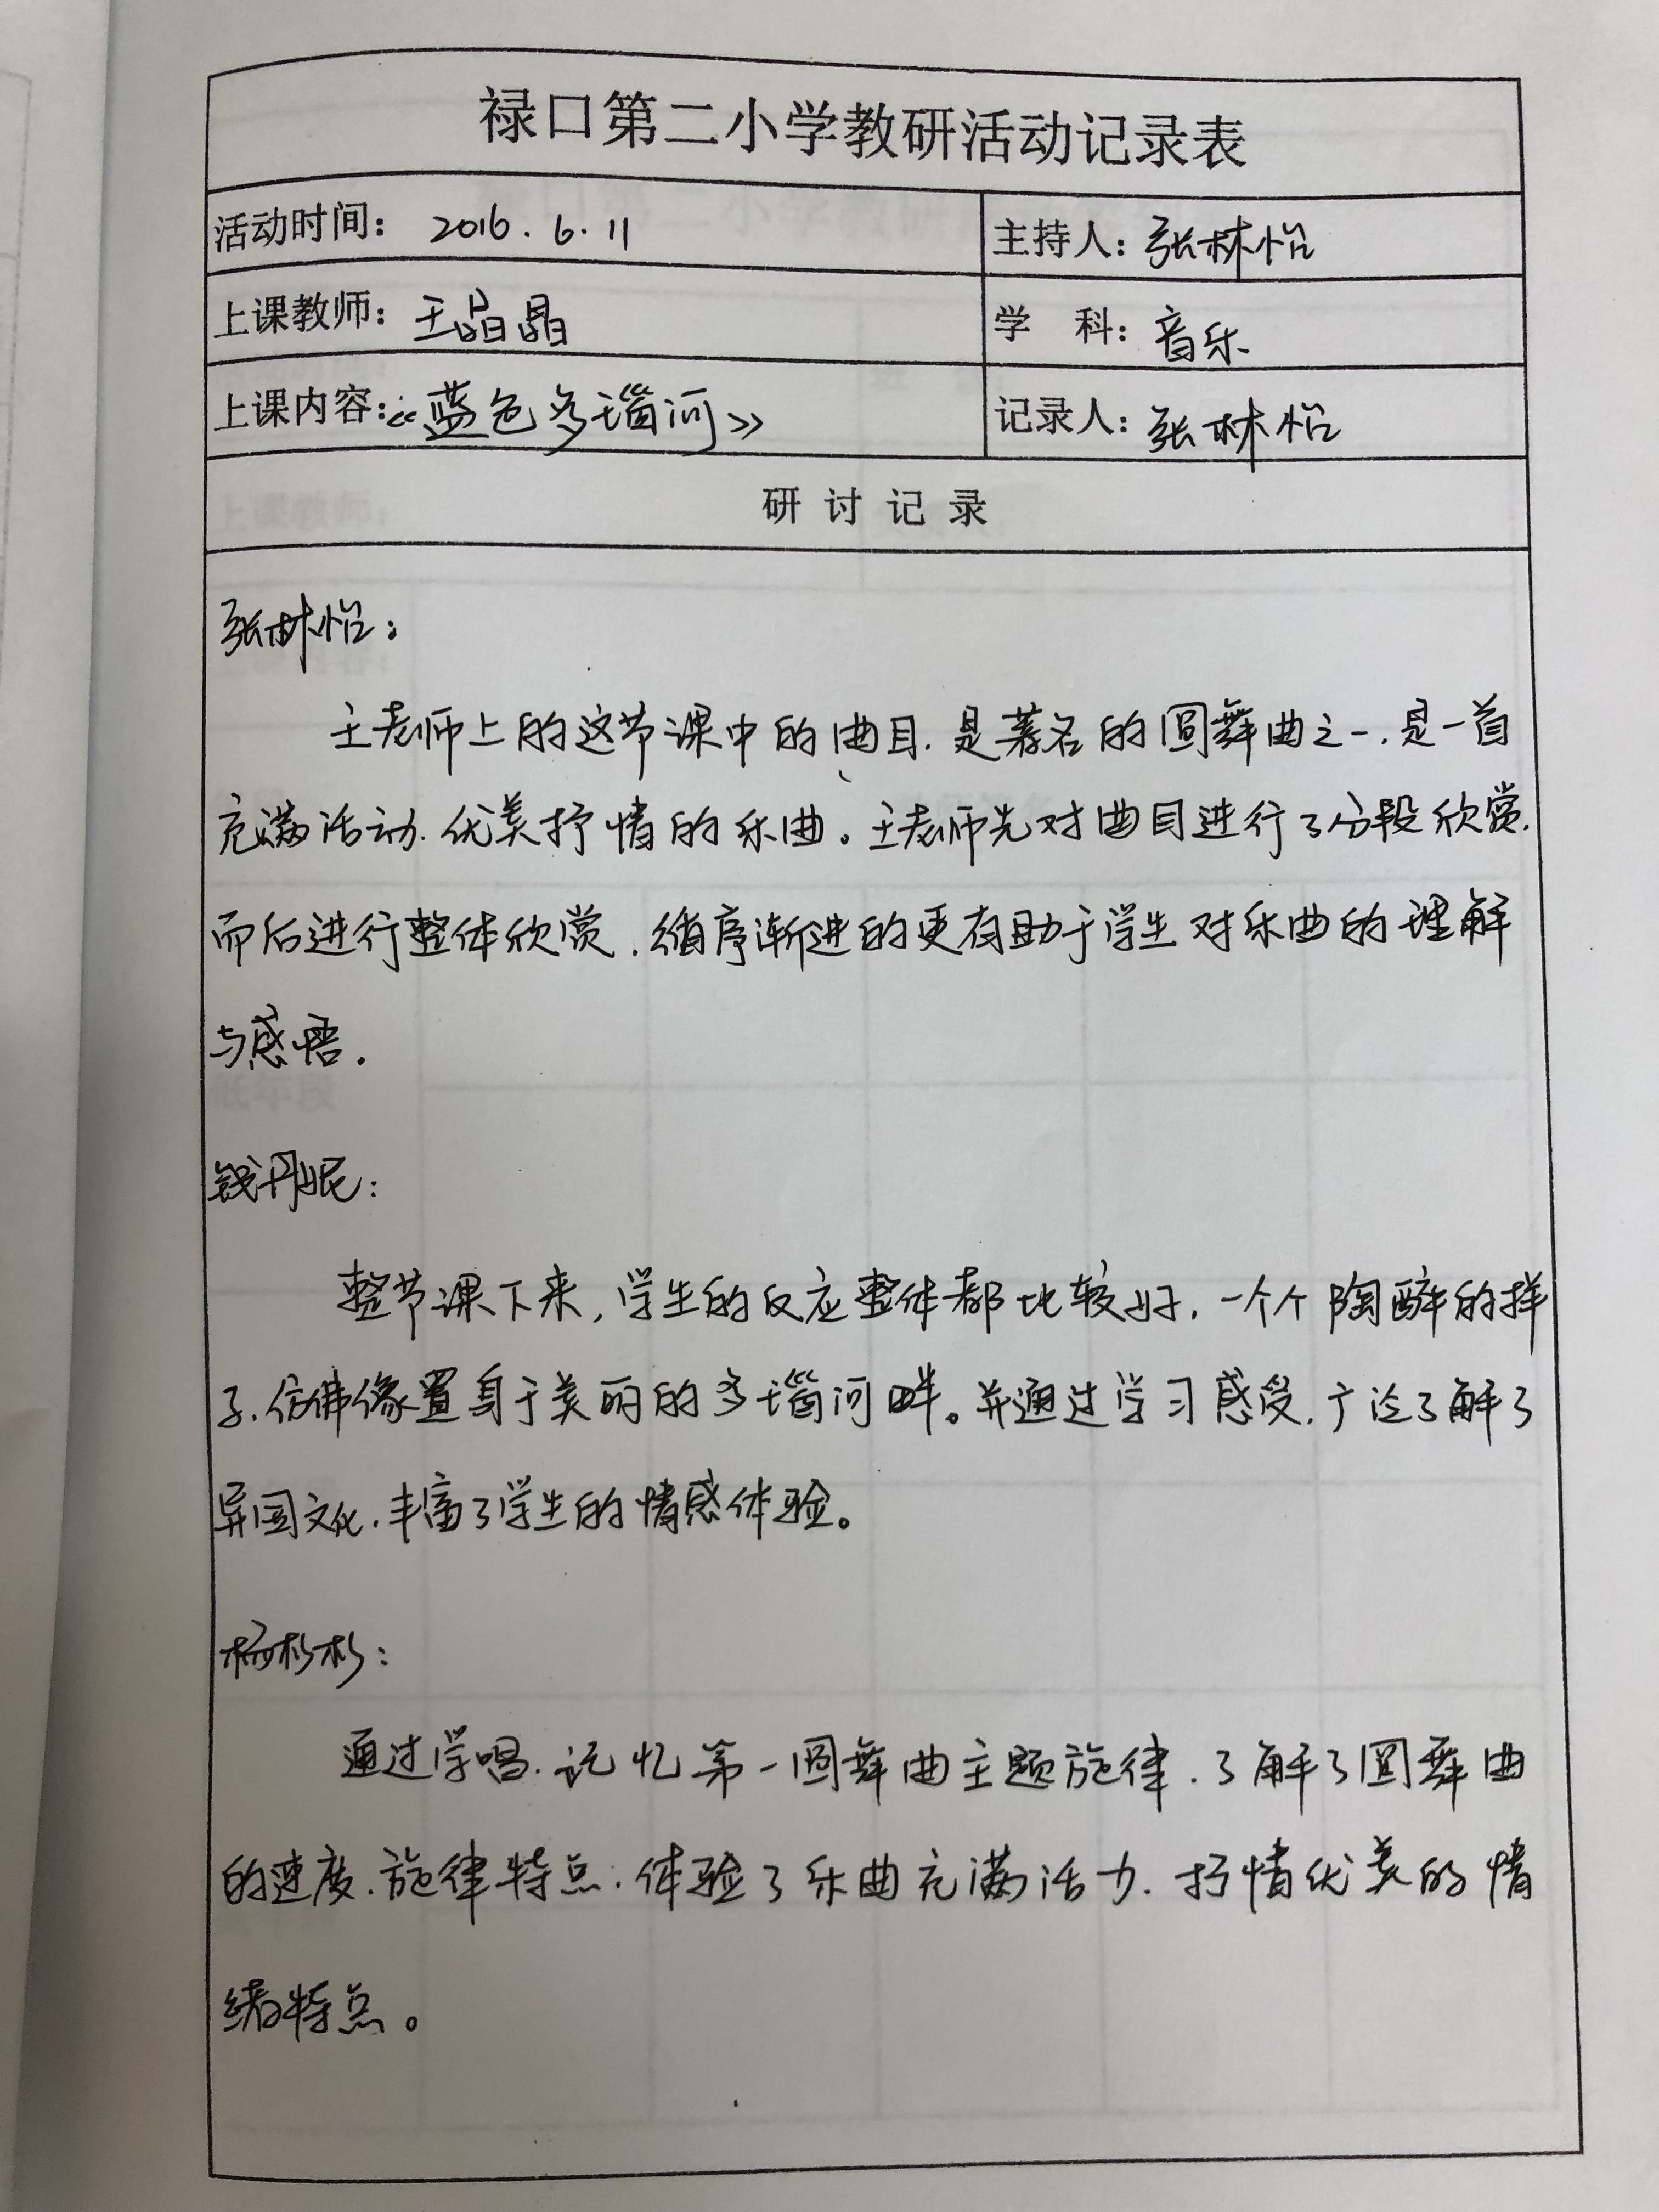 禄口第二小学教研活动记录表
活动时间： 2016.6.11 主持人：张林怡
上课教师：王晶晶 学 科：音乐
上课内容：《蓝色多瑙河》 记录人：张林怡
研 讨 记 录
张林怡：
王老师上的这节课中的曲目.是著名的圆舞曲之一.是一首
充满活动.优美抒情的乐曲。王老师先对曲目进行了分段欣赏.
而后进行整体欣赏.循序渐进的更有助于学生对乐曲的理解
与感悟.
钱丹妮：
整节课下来,学生的反应整体都比较好.一个个陶醉的样
子.仿佛像置身于美丽的多瑙河畔。并通过学习感受.广泛了解了
异国文化.丰富了学生的情感体验。
杨杉杉：
通过学唱.记忆第一圆舞曲主题旋律.了解了圆舞曲
的速度.旋律特点.体验了乐曲充满活力.抒情优美的情
绪特点。